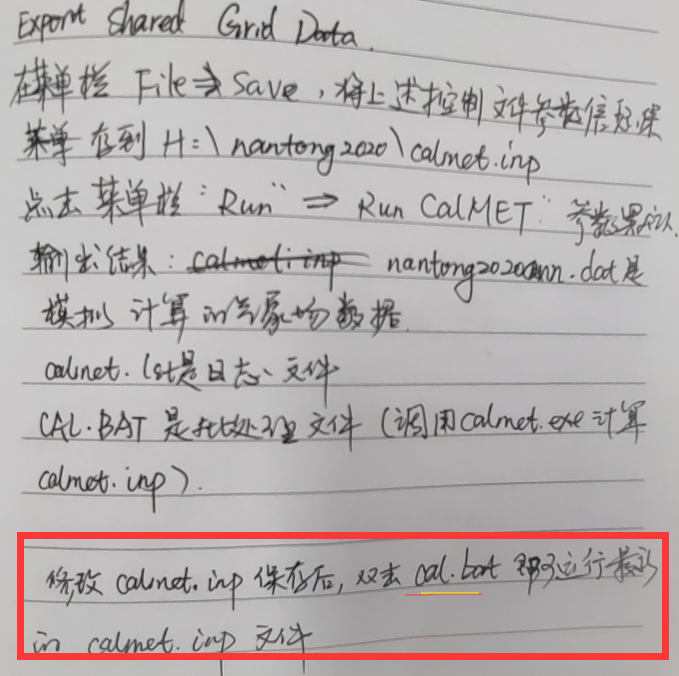 Export Shared Grid Data.
在菜单栏 File⇒Save，将上述控制文件参数信息保
存到 H:\nantong2020\calmet.inp
点击菜单栏“Run” ⇒ Run CALMET” 参数默认
输出结果： nantong2020ann.dat是
模拟计算的气象场数据.
calmet.lst是日志、文件
CAL.BAT 是批处理文件（调用calmet.exe计算
calmet.inp）.
修改 calmet.inp 保存后，双击 cal.bat 即可运行最新
的 calmet.inp 文件